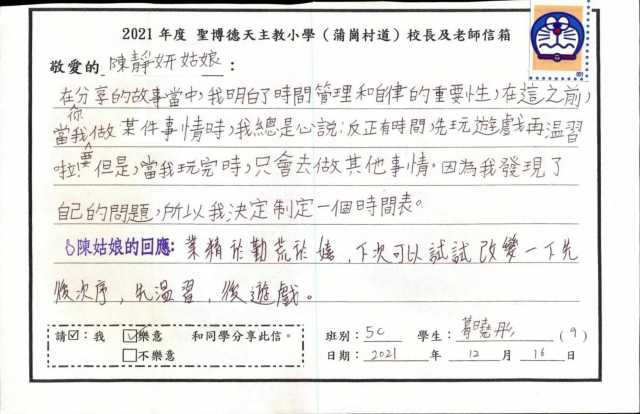 2021 年度 聖博德天主教小學（蒲崗村道）校長及老師信箱
敬愛的 陳靜妍姑娘 ：
在你分享的故事當中，我明白了時間管理和自律的重要性，在這之前，
當我要做某件事情時，我總是心說：反正有時間，先玩遊戲再溫習
啦！但是，當我玩完時，只會去做其他事情。因為我發現了
自己的問題，所以我決定制定一個時間表。
陳姑娘的回應：業精於勤荒於嬉，下次可以試試改變一下先
後次序，先溫習，後遊戲。
請☑：我 ☑樂意 和同學分享此信。 班別：5C 學生： 曉彤 （9）
□不樂意 日期：2021 年 12 月 16 日